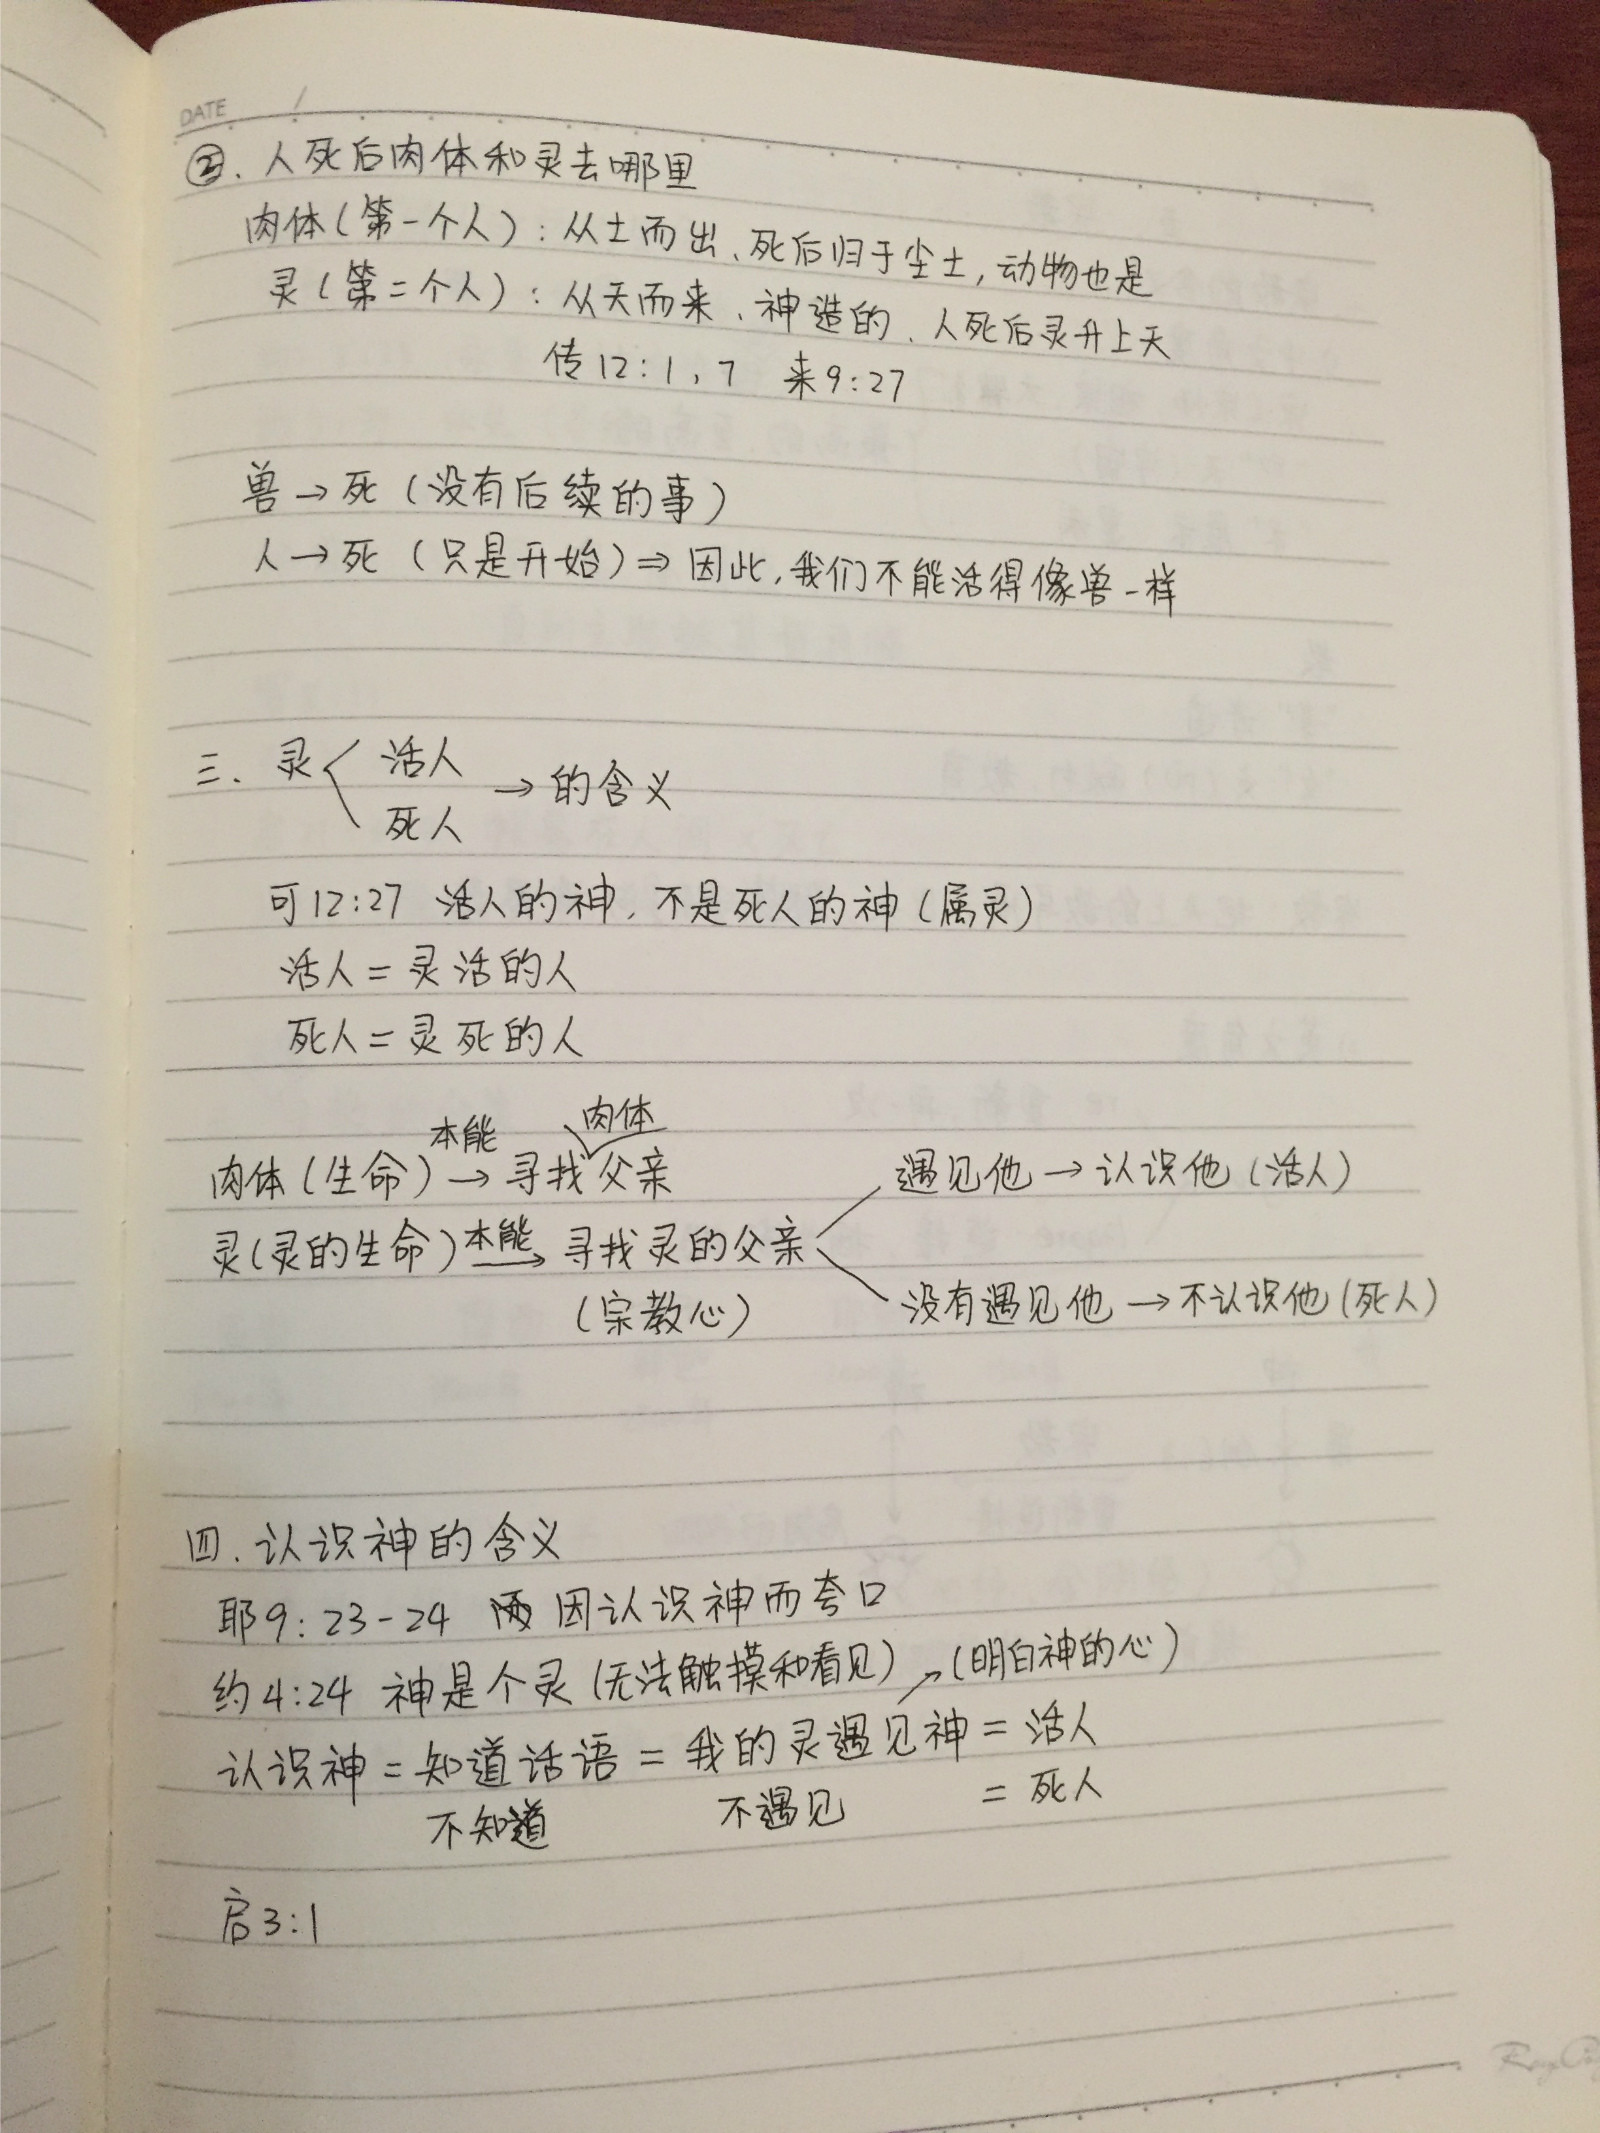 DATE /
②. 人死后肉体和灵去哪里
肉体(第一个人): 从土而出、死后归于尘土, 动物也是
灵(第二个人): 从天而来、神造的、人死后灵升上天
传12:1, 7 来9:27
兽→死 (没有后续的事)
人→死 (只是开始)⇒ 因此, 我们不能活得像兽一样
三、灵 活人
→的含义
死人
可12:27 活人的神, 不是死人的神(属灵)
活人=灵活的人
死人=灵死的人
本能 肉体
肉体(生命)→寻找父亲 遇见他→认识他(活人)
灵(灵的生命)本能→寻找灵的父亲
(宗教心) 没有遇见他→不认识他(死人)
四、认识神的含义
耶9:23-24 因认识神而夸口
约4:24 神是个灵(无法触摸和看见) ↗(明白神的心)
认识神=知道话语=我的灵遇见神=活人
不知道 不遇见 =死人
启3:1